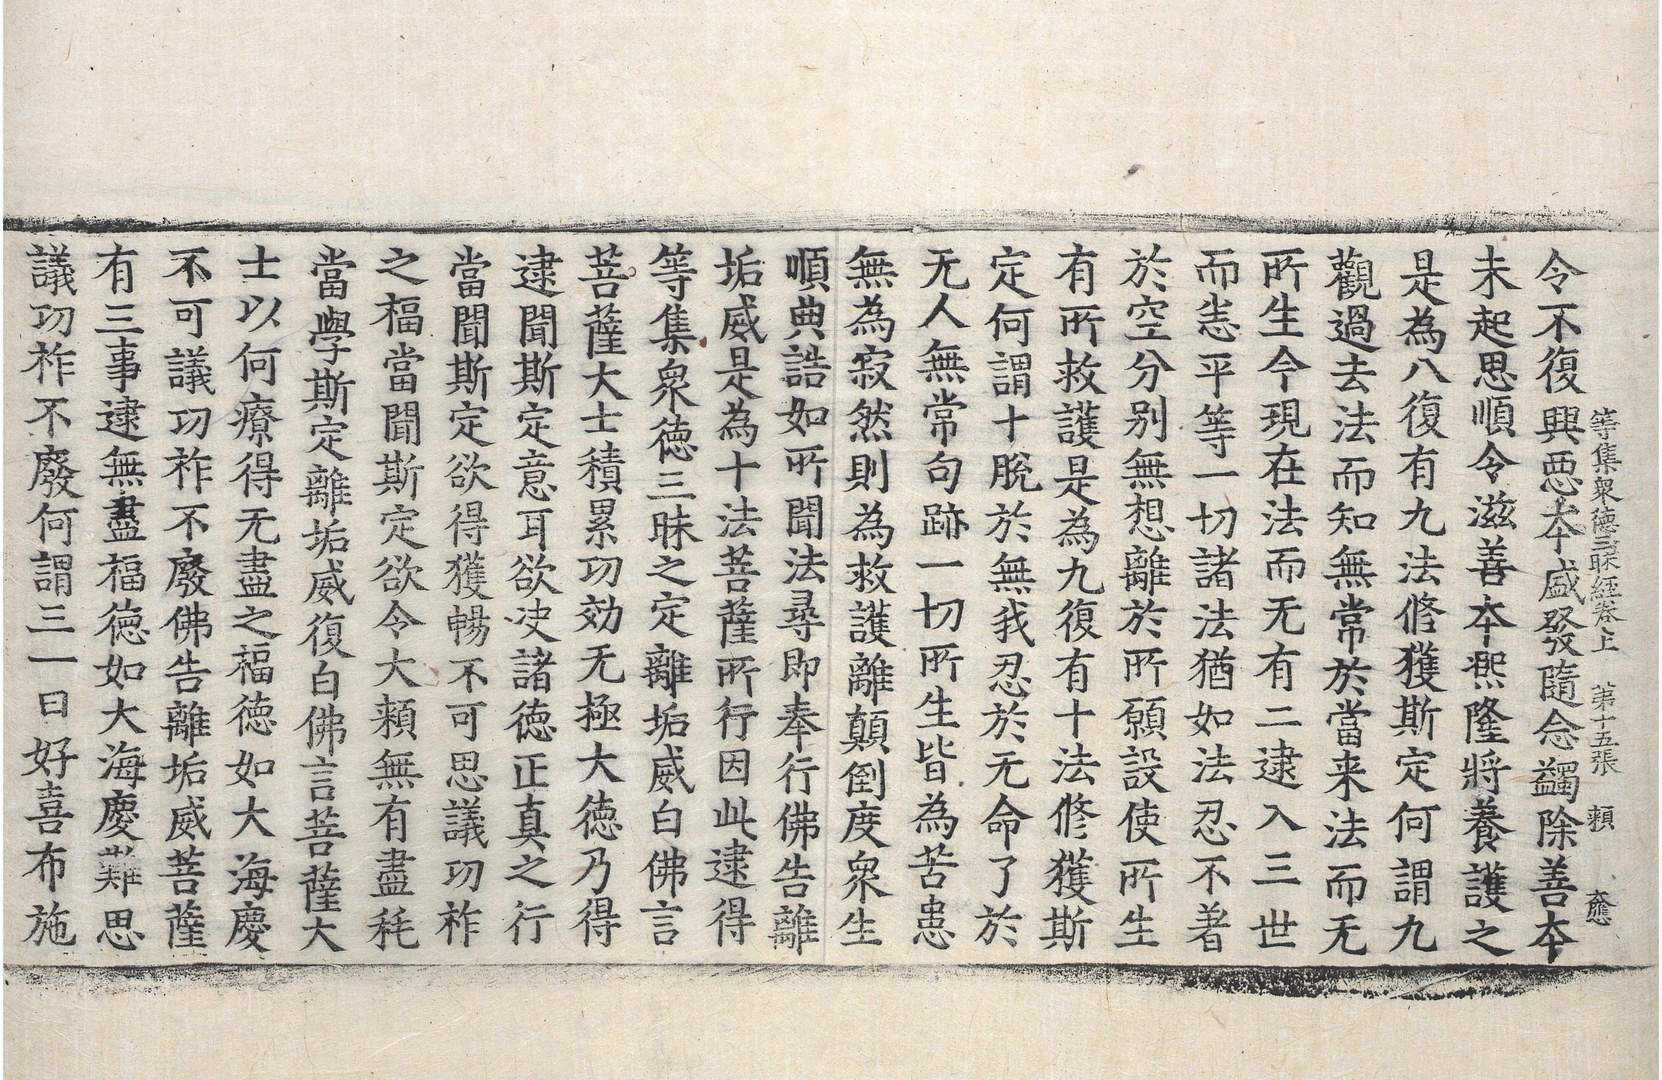 等集衆德三昧經卷上　第十五張　頼
令不復興惡本盛發隨念蠲除善本
未起思順令滋善本熙隆將養護之
是為八復有九法修獲斯定何謂九
觀過去法而知無常於當来法而无
所生今現在法而无有二逮入三世
而恙平等一切諸法猶如法忍不著
於空分別無想離於所願設使所生
有所救護是為九復有十法修獲斯
定何謂十脫於無我忍於无命了於
无人無常句跡一切所生皆為苦患
無為寂然則為救護離顛倒度衆生
順典誥如所聞法尋即奉行佛告離
垢威是為十法菩薩所行因此逮得
等集衆德三昧之定離垢威白佛言
菩薩大士積累功効无極大德乃得
逮聞斯定意耳欲決諸德正真之行
當聞斯定欲得獲暢不可思議功祚
之福當聞斯定欲令大頼無有盡耗
當學斯定離垢威復白佛言菩薩大
士以何療得无盡之福德如大海慶
不可議功祚不廢佛告離垢威菩薩
有三事逮無盡福德如大海慶難思
議功祚不廢何謂三一曰好喜布施